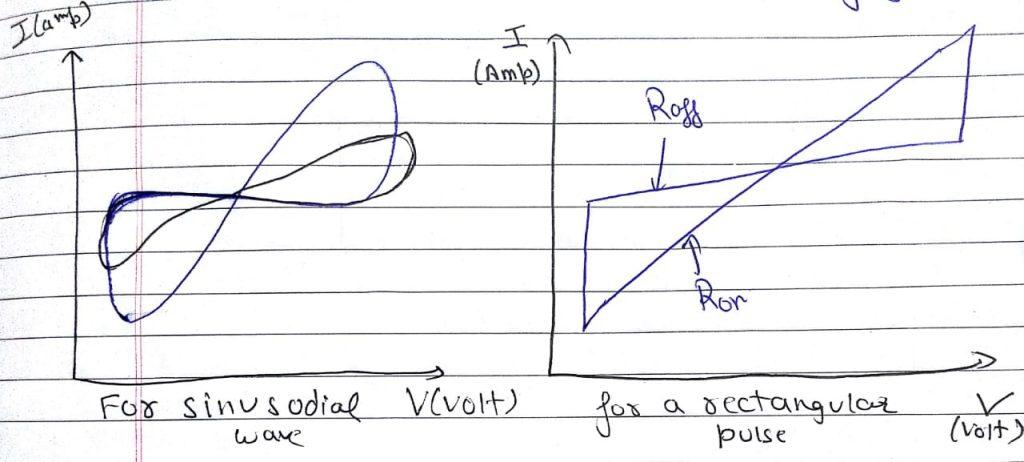 I(amp)
I
(Amp)
Roff
Ron
For sinusodial V(volt)
wave
for a rectangular V
pulse (volt)